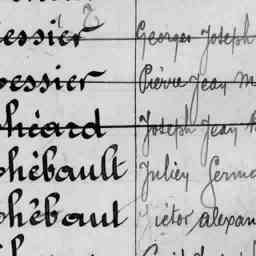 essier Georges Joseph
essier Pierre Jean M
héard Joseph Jean
hébault Julien Germa
hébaut Victor, alexan